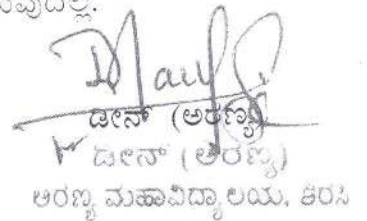 ಡೀನ್ (ಅರಣ್ಯ)
ಡೀನ್ (ಅರಣ್ಯ)
ಅರಣ್ಯ ಮಹಾವಿದ್ಯಾಲಯ, ಶಿರಸಿ